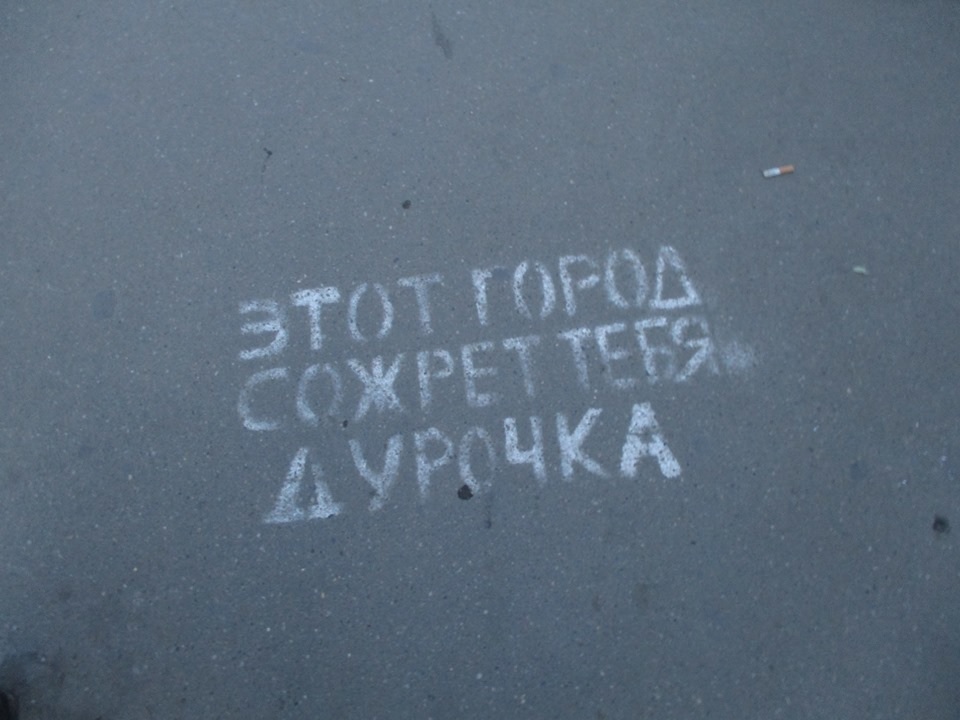 ЭТОТ ГОРОД
СОЖРЕТ ТЕБЯ
ДУРОЧКА